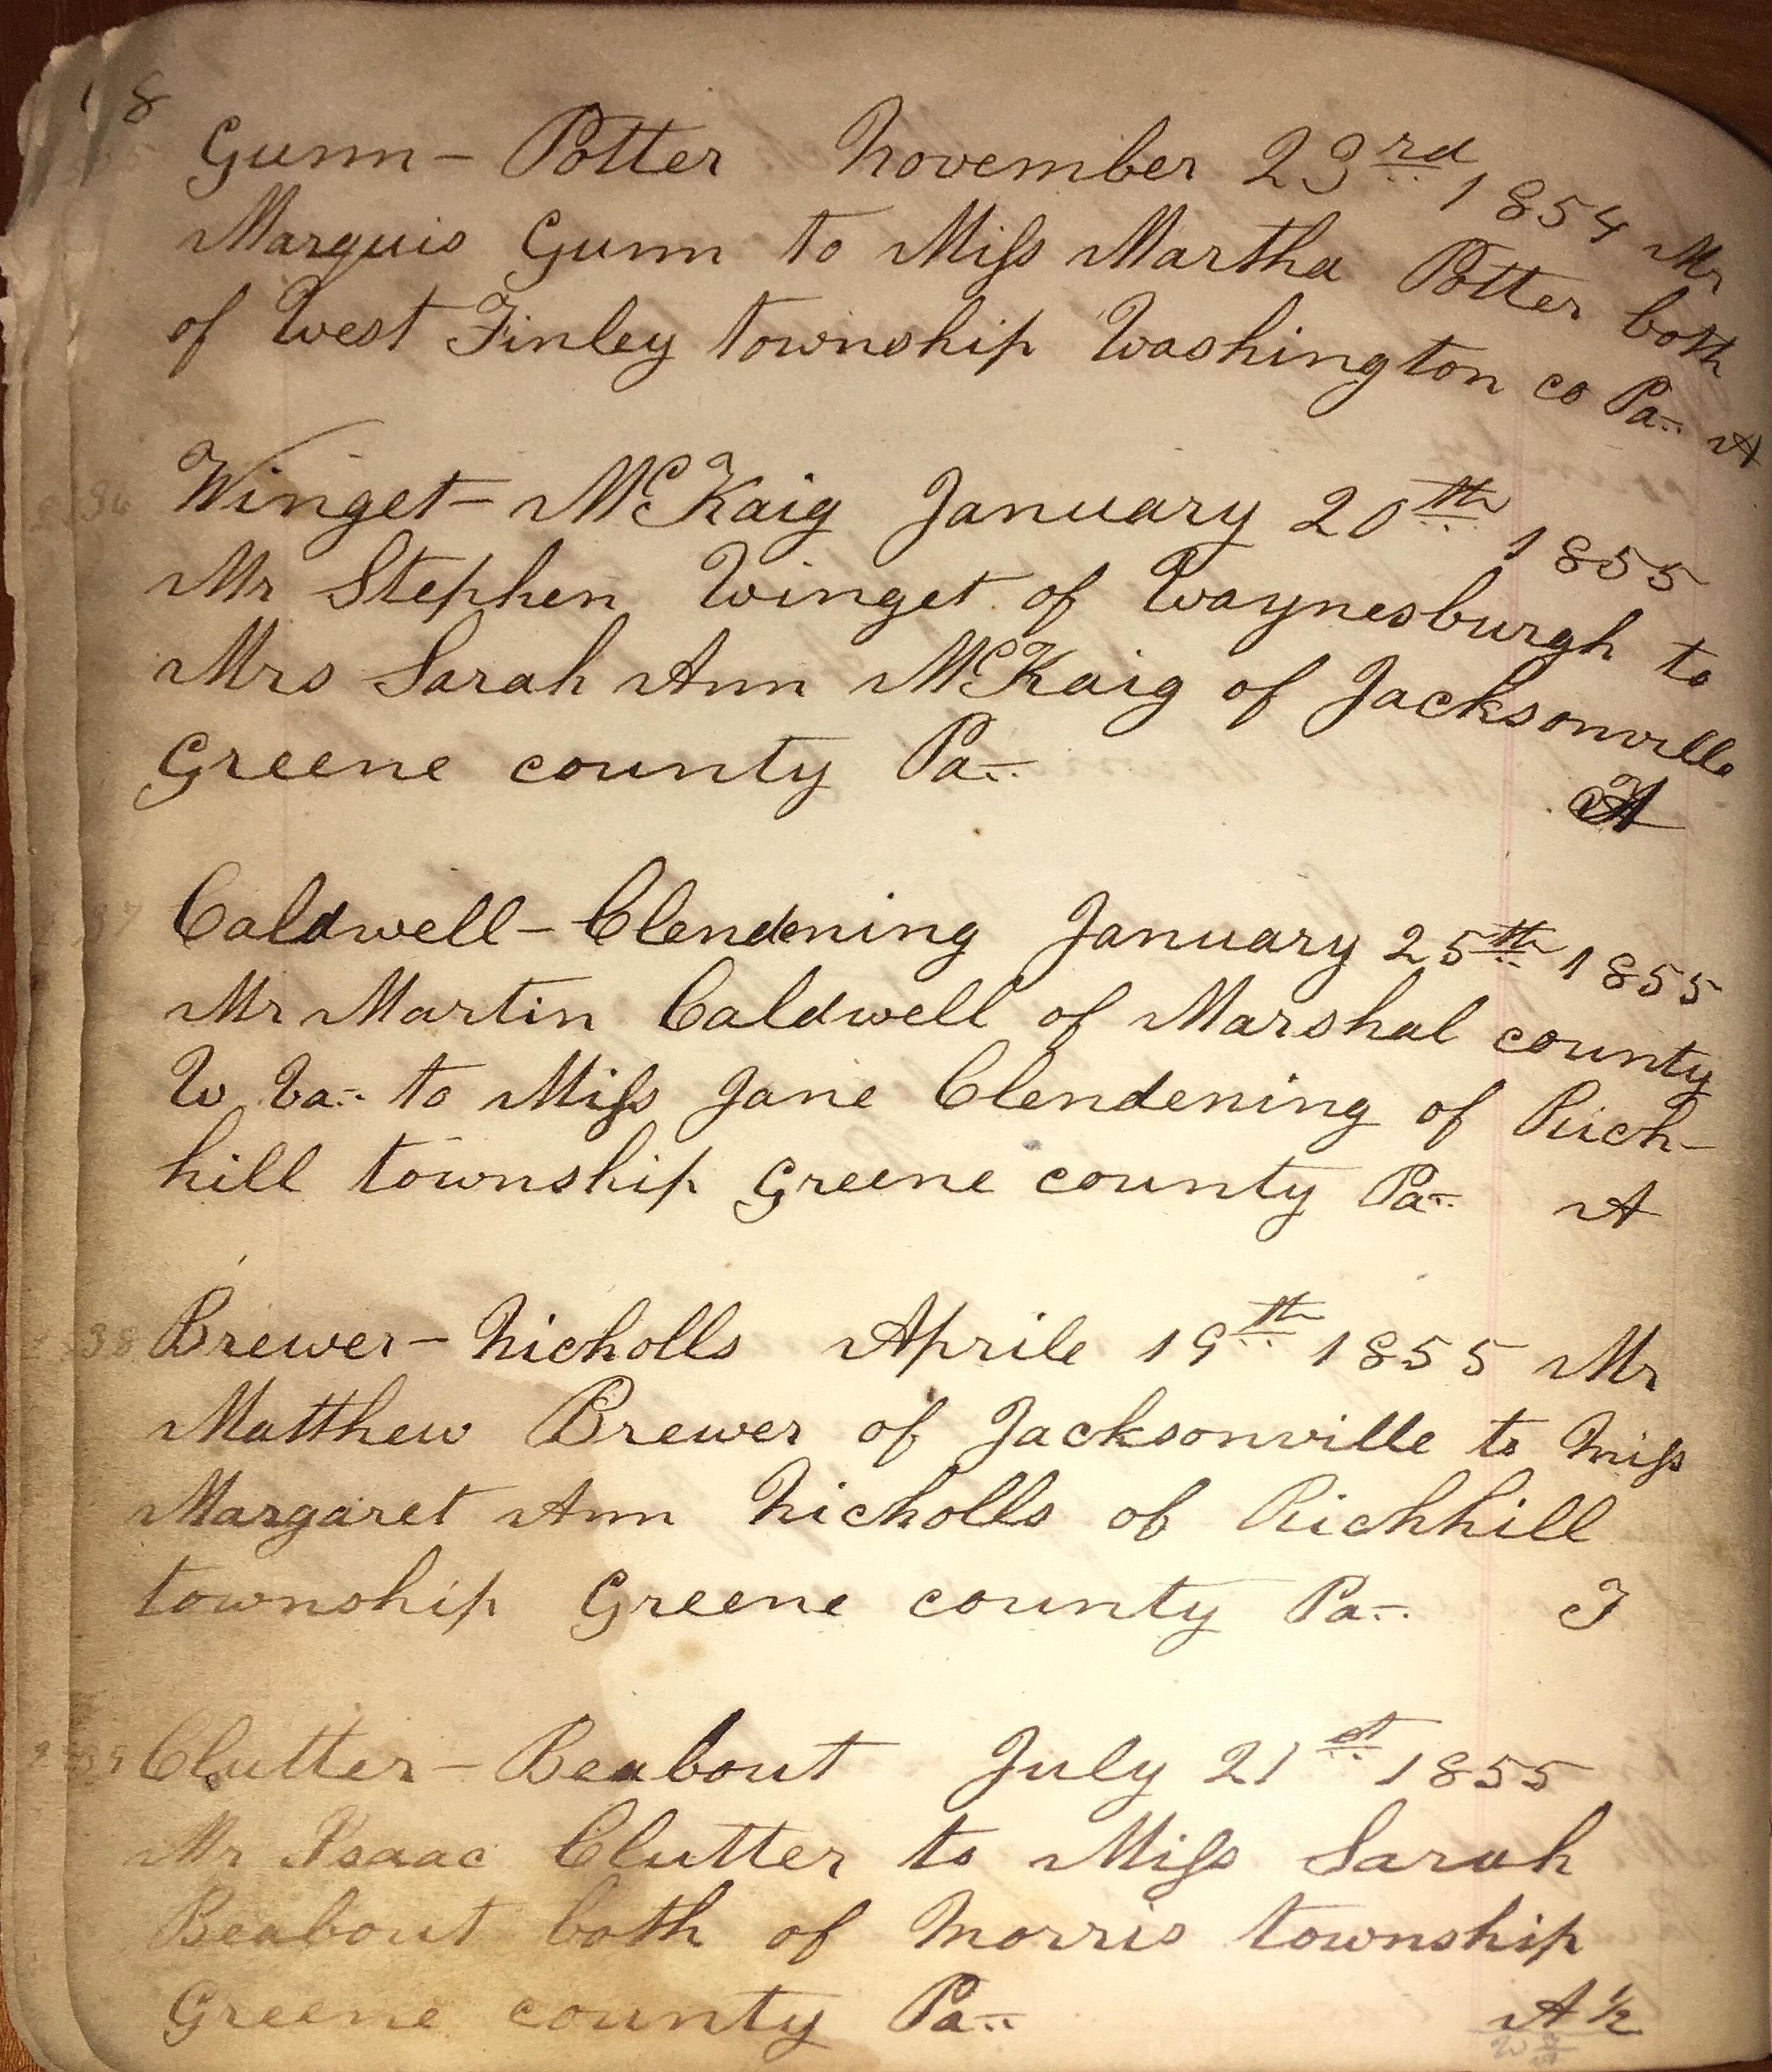 18
Gunn - Potter November 23rd 1854 Mr
Marquis Gunn to Miss Martha Potter both
of West Finley township Washington co Pa A
36 Winget - McKaig January 20th 1855
Mr Stephen Winget of Waynesburgh to
Mrs Sarah Ann McKaig of Jacksonville
Greene county Pa
A
37 Caldwell - Clendening January 25th 1855
Mr Martin Caldwell of Marshal county
W Va to Miss Jane Clendening of Rich-
hill township Greene county Pa A
38 Brewer - Nicholls Aprile 19th 1855 Mr
Matthew Brewer of Jacksonville to Miss
Margaret Ann Nicholls of Richhill
township Greene county Pa
Clutter - Beabout July 21st 1855
Mr Isaac Clutter to Miss Sarah
Beabout both of Morris township
Greene county Pa A ½